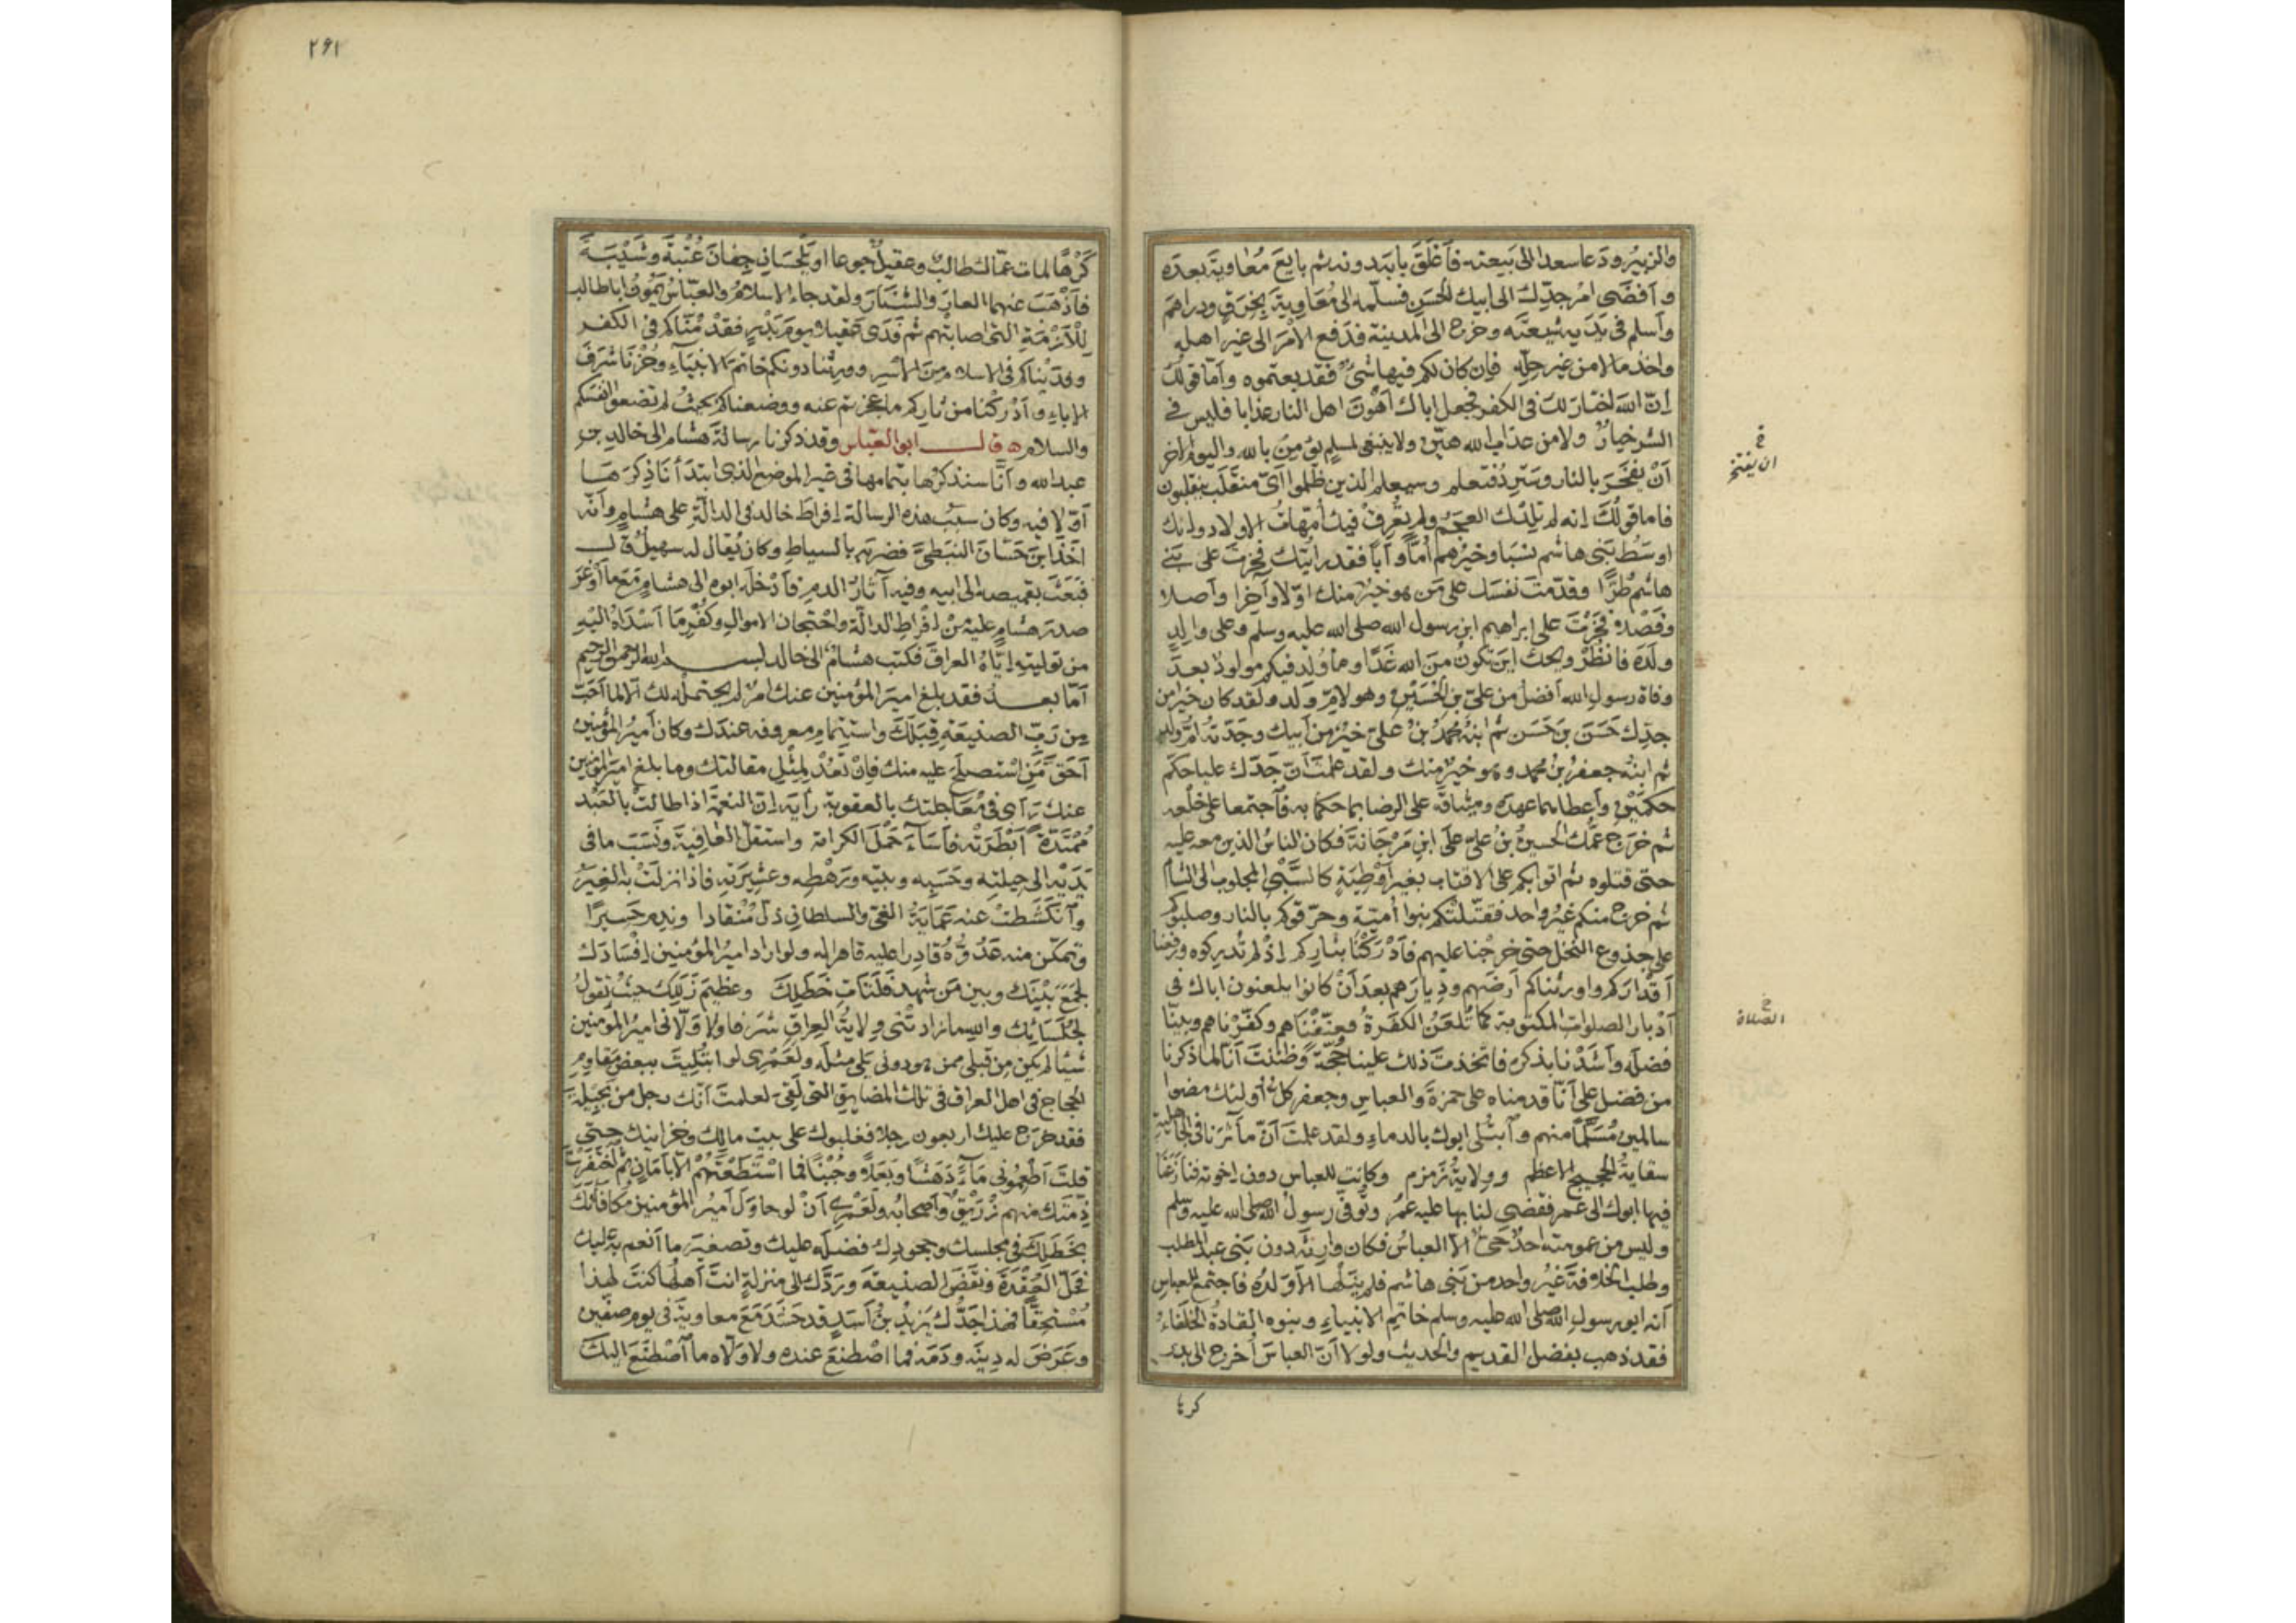 والزبيرُ ودَعا سعدا الى بَيعته فَاَغْلَقَ بابَه دونه ثم بايعَ مُعاوِيةَ بعدَه
وَاَفضَى امْرُ جدِّك الى ابيك الحَسَنِ فسلّمه الى مُعَاوِيةَ بِخِرَقٍ ودراهمَ
وأسلم فى يَدَيه شيعتَه وخرج الى المدينة فدَفع الأمْرَ الى غير اهله
واخذ مالا من غير حِلّه فاِن كان لكم فيها شَىْءٌ فقد بعتموه وأمّا قولك
إنّ اللهَ اختارَ لك فى الكفر فجعل اباك اَهْوَنَ اهل النار عذابا فليس فى
الشر خيارٌ ولا من عذاب الله هيّنٌ ولا ينبغى لمسلم يؤمنُ بالله واليوم الاخر
أنْ يفتَخِرَ بالنار وسَتَرِدُ فتعلم وسيعلم الذين ظلموا اَىَّ منقَلَب ينقلبون
فاما قولُكَ انه لم تلِدْك العجمُ ولم يُعْرِقْ فيك اُمّهاتُ الاولاد وانك
اوسَطُ بَنِى هاشم نسَبا وخيرُهم اُمّاً واَبًا فقد رايْتك فَخِرْتَ على بَنِى
هاشم طُرًّا وقدّمتَ نفسَك على مَن هو خيرٌ منك اوّلا وآخِرا وأصلا
وفَصْلا فَخَرْتَ على ابرهيم ابن رسول الله صلى الله عليه وسلم وعلى والِدِ
ولَدَه فانظُرْ ويحك اين تكونُ من الله غَدًا وما وُلِد فيكم مولودٌ بعدَ
وفاة رسولِ الله افضلُ من علىّ بن الحُسَيْنِ وهو لامّ ولدٍ ولقد كان خيرا من
جدّك حَسَن بن حَسَن ثم ابنُه محمدُ بنُ علىّ خيرٌ من ابيك وجَدّته امُّ ولد
ثم ابنُه جعفرُ بنُ محمد وهو خيرٌ منك ولقد علمتَ اَنّ جَدّك عليا حكّم
حكمَيْن وأعطاهما عهدَه ومِيثاقَه على الرضا بما حكما به فاَجتمعا على خلْعه
ثم خَرَج عمُّك الحسينُ بنُ علىّ علَى ابنِ مَرْجَانةَ فكان الناسُ الذين معه عليه
حتى قتلوه ثم اَتوا بكم على الاقتاب بغير أوْطِيَةٍ كالسَّبْىِ المجلوب الى الشام
ثم خرج منكم غيرُ واحد فقتّلتْكم بنوا اُميّة وحرّقوكم بالنار وصلبوكم
على جذوع النخل حتى خرجْنا عليهم فاَدْرَكْنا بثأركم اِذْ لم تُدركوه ورفعنا
أقْدارَكم واورثناكم اَرضَهم ودِيارَهم بعدَ اَنْ كانوا يلعنون اباك فى
اَدْبار الصلوات المكتوبة كما تُلعَنُ الكفَرةُ فعنّفْنَاهم وكفّرْناهم وبينّا
فضلَه واَشَدْنا بذكره فاتّخذتَ ذلك علينا حُجّةً وظنَنتَ اَنّا لما ذكرنا
من فضل على اَنّا قدمناه على حمزةَ والعباسِ وجعفر كلُّ اُولئك مضوا
سالمين مُسَلَّمًا منهم واَبتُلى ابوك بالدماءِ ولقد علمتَ اَنّ مآثرَنا فى الجاهلية
سقايةُ الحجيج الاعظم وولايةُ زمزم وكانت للعباس دون اخوته فنازَعَنا
فيها ابوك الى عمر فقضى لنا بها عليه عمرُ وتُوفى رسولُ الله صلى الله عليه وسلم
وليس من عمومته احدٌ حَىٌّ الاّ العباسُ فكان وارِثَه دون بَنِى عبد المطلب
وطلب الخلافةَ غيرُ واحد من بَنى هاشم فلم يَنَلْها الاّ وَلدُه فاجتمع للعباسِ
اَنه ابو رسول الله صلى الله عليه وسلم خاتِمِ الانبياءِ وبنوه القادةُ الخلفاءُ
فقد ذهب بفضل القديم والحديث ولولا اَنّ العباسَ اُخرج الى بدر
كرها
خ
ان يفتخر
خ
الصلاة
٢٦١
كَرْهًا لمات عمّاك طالبٌ وعقيلٌ جوعا او يَلْحسَانِ جِفانَ عُتْبةَ وشَيْبَةَ
فاَذْهَبَ عنهما العارَ والشَّنَارَ ولقد جاء الاسلامُ والعبّاسُ يَمُونُ اباطالب
لِلْاَزْمَةِ التى اصابتْهم ثم فَدَى عقيلا يومَ بَدْرٍ فقدْ مُنّاكم فى الكفر
وفدَيْناكم فى الاسلام من الاَسْر وورِثْنا دونكم خاتمَ الانبيَاءِ وحُزْنا شرفَ
الاباءِ وَاَدْرَكْنا من ثأركم ما عجَزتم عنه ووضعناكم بحيثُ لم تضَعوا انفسَكم
والسلام ه قال ابو العبّاس وقد ذكرنا رسالةَ هشام الى خالدِ بنِ
عبد الله واَنّا سنذكرُها بتمامها فى غير الموضع الذى ابتدَأنا ذِكرَهَا
اَوّلا فيه وكان سبَبُ هذه الرسالة اِفراطَ خالد فى الدالّةِ على هشامٍ وأنّه
اَخَذَ ابنَ حَسّانَ النبَطِىَّ فضربه بالسياطِ وكان يُقال له سهيلٌ قال
فبَعَثَ بقميصه الى ابيه وفيه آثارُ الدم فاَدْخلَه ابوه الى هشامٍ مَعَ ما اَوْغَرَ
صدرَ هشامٍ عليه مِنْ اِفْراطِ الدالّةِ واحْتِجان الاموالِ وكُفْرِ مَا اَسْدَاهُ اليْهِ
من توليته اِيّاهُ العراقَ فكتب هشامٌ الى خالد بسم الله الرحمن الرحيم
اَمّا بعدُ فقد بلغ اميرَ المؤمنين عنك امرٌ لم يحتمله لك الاّ لما اَحَبّ
مِن رَبِّ الصنيعَةِ قِبَلَكَ واستِتْمامِ معروفه عندك وكان أميرُ المؤمنين
اَحَقَّ مَنِ اسْتصلَحَ عليه منك فاِنْ تعُدْ لِمِثْلِ مقالتك وما بلغ اميرَ المؤمنين
عنك رَآى فى مُعَاجلتك بالعقوبة رأيَه اِنّ النعمةَ اذا طالتْ بالعَبْد
مُمْتَدّةً اَبْطَرَتْه فاَسَآءَ حَمْلَ الكرامة واستقلّ العافيةَ ونَسَبَ ما فى
يَدَيْه الى حِيلته وحَسَبِه وبيته ورَهْطه وعشيرَته فاذا نزلَتْ به الغِيَرُ
وَانكَشَطتْ عنه عَمَايةُ الغَىّ والسلطانِ ذَلّ مُنْقادا وندِم حَسيرًا
وتمكّن منه عَدُوُّهُ قادِرا عليه قاهرا له ولو اراد اميرُ المؤمنين اِفْسَادَك
لجَمَعَ بَيْنَك وبين مَن شهِد فَلَتَاتِ خَطَلِكَ وعظِيمَ زَلَلِك حيثُ تقولُ
لجُلَسَائِك والله ما زادتْنى وِلايةُ العِراقِ شَرَفا ولا وَلاّنى اميرُ المؤمنين
شيئا لم يكن مِن قبلى ممن هو دونى يَلى مثلَه ولعَمْرى لو ابْتُلِيتَ ببعض مَقاومِ
الحجاج فى اهل العراق فى تلك المضايقِ التى لَقِى لعلمتَ أنّك رجل من بَجِيلةَ
فقد خرج عليك اربعون رجلا فغلبوك على بيت مالك وخزاينك حتى
قلتَ اَطْعِمُونى مَآءً دَهَشًا وبَعَلاً وجُبْنًا فما اسْتطَعْتَهُمْ الاّ بأمَانٍ ثم اَخْفَرْتَ
ذِمّتك منهم رُزَيْقٌ واَصْحابُه ولَعَمْرى اَنْ لو حاوَلَ اَميرُ المؤمنين مُكافَأَتَكَ
بخَطَلِكَ فى مجلسك وجحودِك فضلَه عليك وتصغيرَ ما اَنعم به عليك
فحَلَّ العُقْدَةَ ونَقَضَ الصنيعَةَ ورَدَّك الى منزلةٍ انتَ اَهلُها كنتَ لهذا
مُسْتَحِقًّا فهذا جَدُّك يَزِيدُ بنُ اَسَدٍ قد حَشَدَ مَعَ معاوية فى يوم صفّين
وعَرَضَ له دِينَه ودَمَه فما اصْطنَعَ عنده ولا وَلاّه ما اَصْطنَعَ اليك